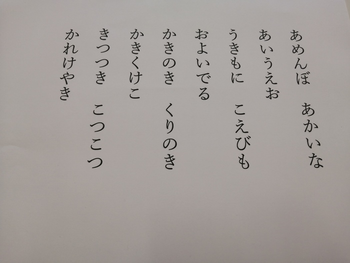 あめんぼ　あかいな
あいうえお
うきもに　こえびも
およいでる
かきのき　くりのき
かきくけこ
きつつき　こつこつ
かれけやき